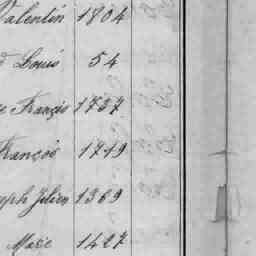 Valentin 1804
d Louis 54
e François 1737
François 1719
eph Julien 1369
Marie 1427